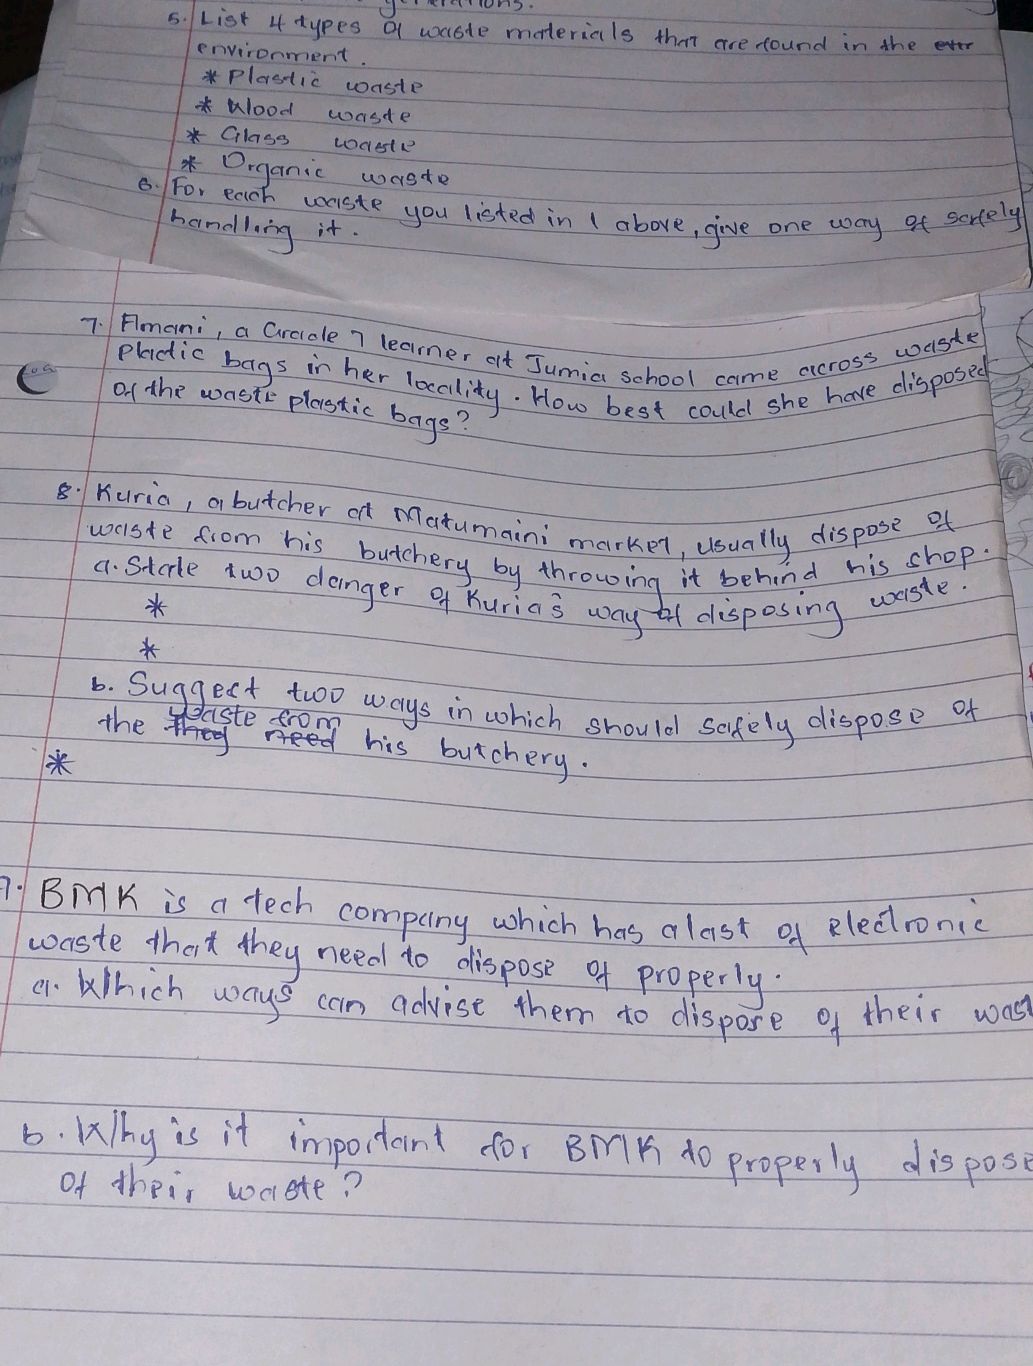 5. List 4 types of waste materials that are found in the
environment.
* Plastic waste
* Wood waste
* Glass waste
* Organic waste
6. For each waste you listed in 1 above, give one way of safely
handling it.
7. Amani, a Grade 7 learner at Jumia school came across waste
plastic bags in her locality. How best could she have disposed
of the waste plastic bags?
8. Kuria, a butcher at Matumaini market, usually dispose of
waste from his butchery by throwing it behind his shop.
a. State two danger of Kuria's way of disposing waste.
*
*
b. Suggest two ways in which should safely dispose of
the waste from his butchery.
*
9. BMK is a tech company which has a last of electronic
waste that they need to dispose of properly.
a. Which ways can advise them to dispose of their wast
b. Why is it important for BMK to properly dispose
of their waste?